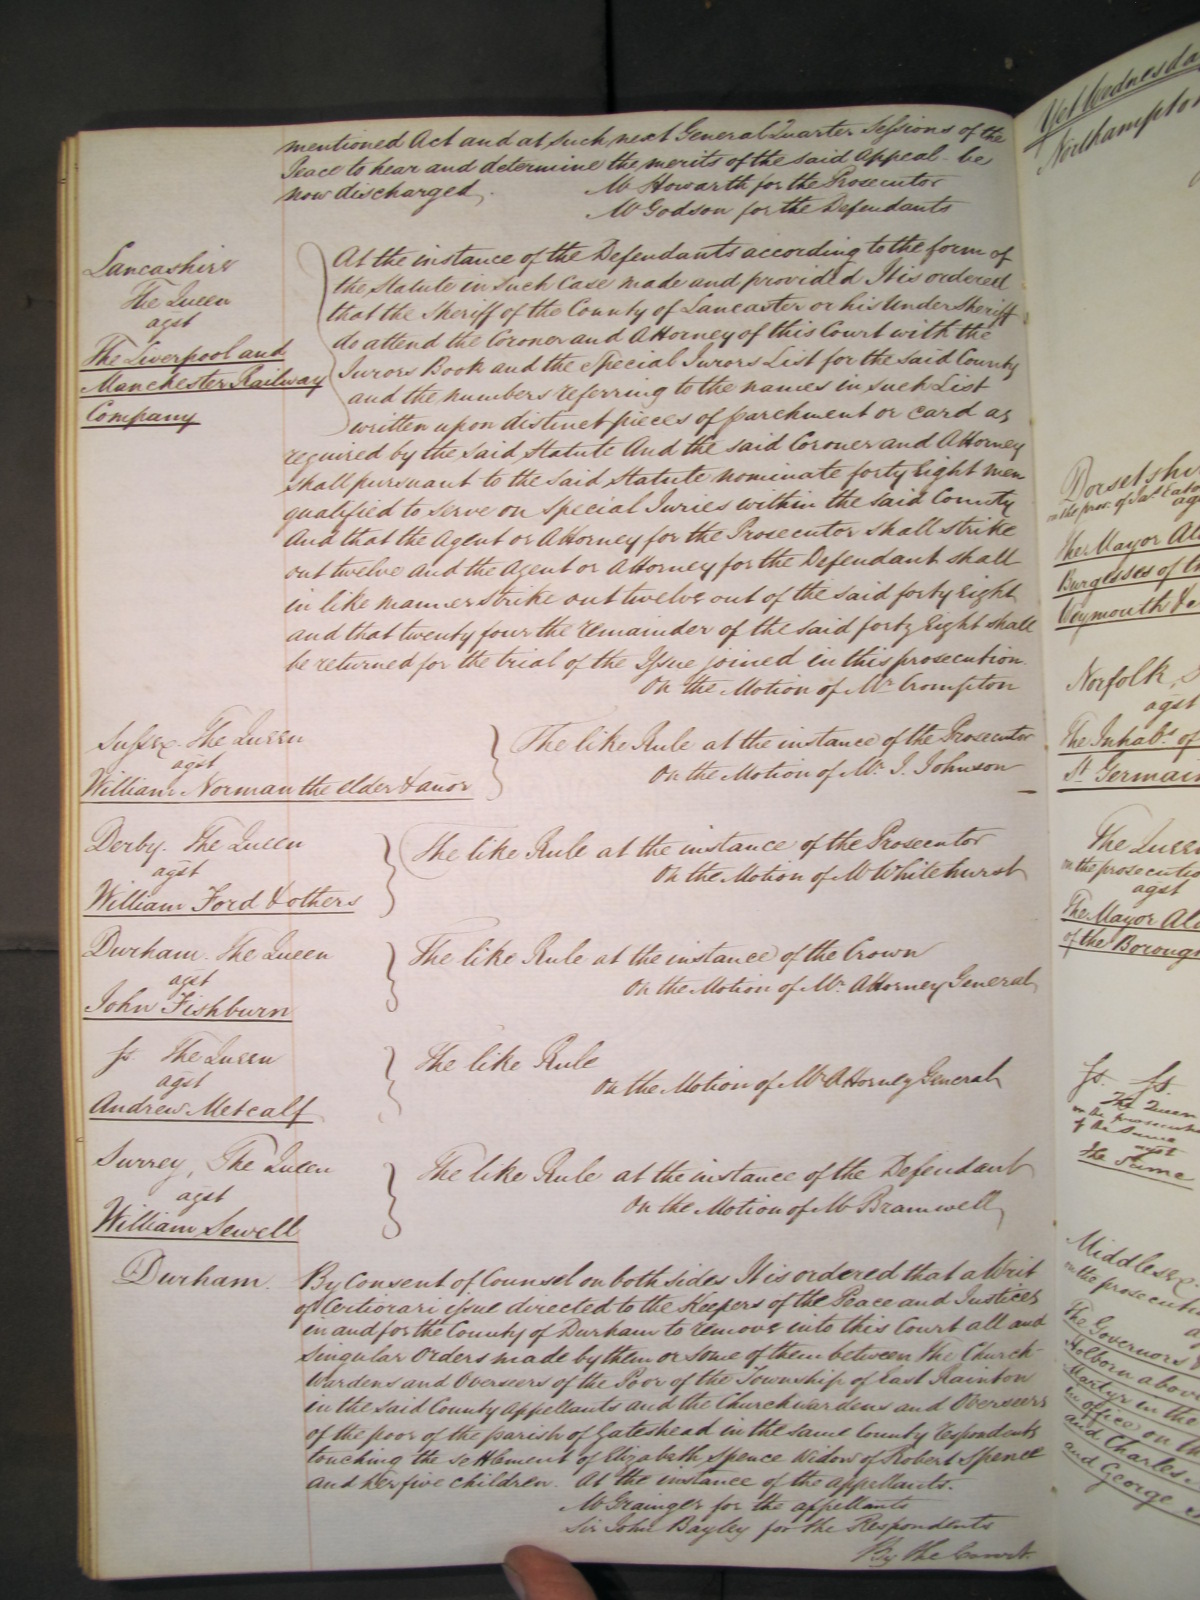 mentioned Act and at such next General Quarter Sessions of the
Peace to hear and determine the merits of the said Appeal be
now discharged.
Mr Howarth for the Prosecutor
Mr Godson for the Defendants
Lancashire
The Queen
agst
The Liverpool and
Manchester Railway
Company
At the instance of the Defendants according to the form of
the Statute in Such Case made and provided It is ordered
that the Sheriff of the County of Lancaster or his Under Sheriff
do attend the Coroner and Attorney of this Court with the
Jurors Book and the Special Jurors List for the said County
and the numbers referring to the names in such List
written upon distinct pieces of parchment or card as
required by the said Statute And the said Coroner and Attorney
shall pursuant to the said Statute nominate forty Eight men
qualified to serve on Special Juries within the said County
And that the Agent or Attorney for the Prosecutor shall strike
out twelve and the Agent or Attorney for the Defendant shall
in like manner strike out twelve out of the said forty Eight
and that twenty four the remainder of the said forty Eight shall
be returned for the trial of the Issue joined in this prosecution
On the Motion of Mr Crompton
Sussex. The Queen
agst
William Norman the elder & anor
The like Rule at the instance of the Prosecutor
On the Motion of Mr J. Johnson
Derby. The Queen
agst
William Ford & others
The like Rule at the instance of the Prosecutor
On the Motion of Mr Whitehurst
Durham. The Queen
agst
John Fishburn
The like Rule at the instance of the Crown
On the Motion of Mr Attorney General
Js. The Queen
agst
Andrew Metcalf
The like Rule
On the Motion of Mr Attorney General
Surrey, The Queen
agst
William Sewell
The like Rule at the instance of the Defendant
On the Motion of Mr Bramwell
Durham.
By Consent of Counsel on both sides It is ordered that a Writ
of Certiorari issue directed to the Keepers of the Peace and Justices
in and for the County of Durham to remove into this Court all and
Singular Orders made by them or some of them between the Church
Wardens and Overseers of the Poor of the Township of East Rainton
in the said County Appellants and the Churchwardens and Overseers
of the poor of the parish of Gateshead in the same County respondents
touching the settlement of Elizabeth Spence Widow of Robert Spence
and her five children. At the instance of the appellants.
Mr Grainger for the appellants
Sir John Bayley for the Respondents
By the Court.
Yet Wednesday
Northampton
Dorsetshi
agst
The Mayor Al
Burgesses of
Weymouth &
Norfolk,
agst
The Inhabts of
St Germain
The Queen
on the prosecutio
agst
The Mayor Ald
of the Borough
Js. Js.
The Queen
on the prosecution
of the Same
agst
the Same
Middlesex.
on the prosecuti
The Governors
Holborn above
Martyr in the
in office on th
and Charles
and George